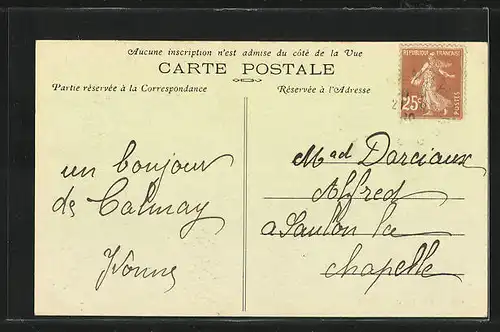 Aucune inscription n'est admise du côté de la Vue
CARTE POSTALE
Partie réservée à la Correspondance
Réservée à l'Adresse
REPUBLIQUE FRANÇAISE
25c
POSTES
un bonjour
de Calmay
Yvonne
Mad Darciaux
Alfred
a Saulon la
chapelle